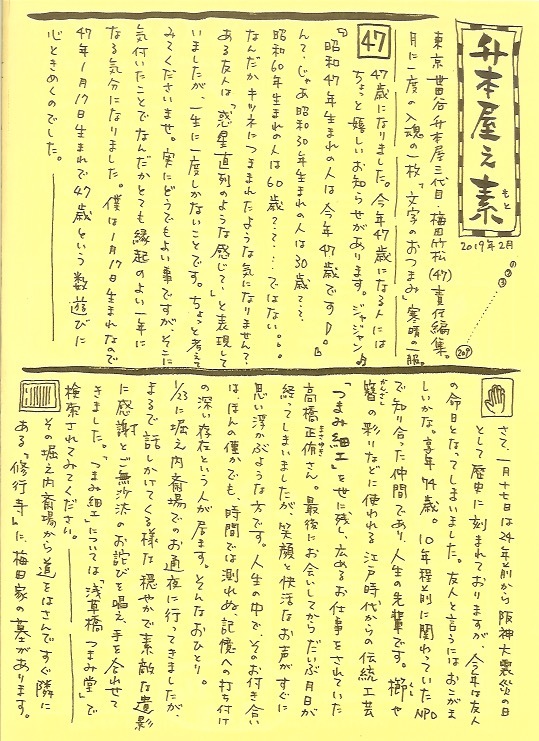 升本屋之素
もと
2019年2月
の
2
3
209
東京世田谷升本屋三代目・梅田竹松(47)責任編集。
月に一度の入魂の一枚「文字のおつまみ」寒晴の一服。
47
47歳になりました。今年47歳になる人には
ちょっと嬉しいお知らせがあります。ジャジャン♪
『昭和47年生まれの人は今年47歳です』。
んて?じゃあ昭和30年生まれの人は30歳て??
昭和60年生まれの人は60歳??・・ではない。。。
なんだかキツネにつままれたような気になりません?
ある友人は「惑星直列のような感じて」と表現して
いましたが、一生に一度しかないことです。ちょっと考えて
みてくださいませ。実にどうでもよい事ですが、そこに
気付いたことでなんだかとても縁起のよい一年に
なる気分になりました。僕は1月17日生まれなので
47年1月17日生まれで47歳という数遊びに
心ときめくのでした。
さて、一月十七日は24年前から阪神大震災の日
として歴史に刻まれておりますが、今年は友人
の命日となってしまいました。友人と言うにはおこがま
しいかな。享年74歳。10年程前に関わっていたNPO
で知り合った仲間であり、人生の先輩です。櫛や
簪の彩りなどに使われる江戸時代からの伝統工芸
かんざし
「つまみ細工」を世に残し、広めるお仕事をされていた
高橋正侑さん。最後にお会いしてからだいぶ月日が
まさゆき
経ってしまいましたが、笑顔と快活なお声がすぐに
思い浮かぶような方です。人生の中で、そのお付き合い
は、ほんの僅かでも、時間では測れぬ、記憶への打ち付け
の深い存在という人が居ます。そんなおひとり。
1/23に堀之内斎場でのお通夜に行ってきましたが、
まるで話しかけてくる様な穏やかで素敵な遺影
に感謝とご無沙汰のお詫びを唱え、手を合わせて
きました。「つまみ細工」については「浅草橋つまみ堂」で
検索されてみてください。
その堀之内斎場から道をはさんですぐ隣に
ある「修行寺」に、梅田家の墓があります。